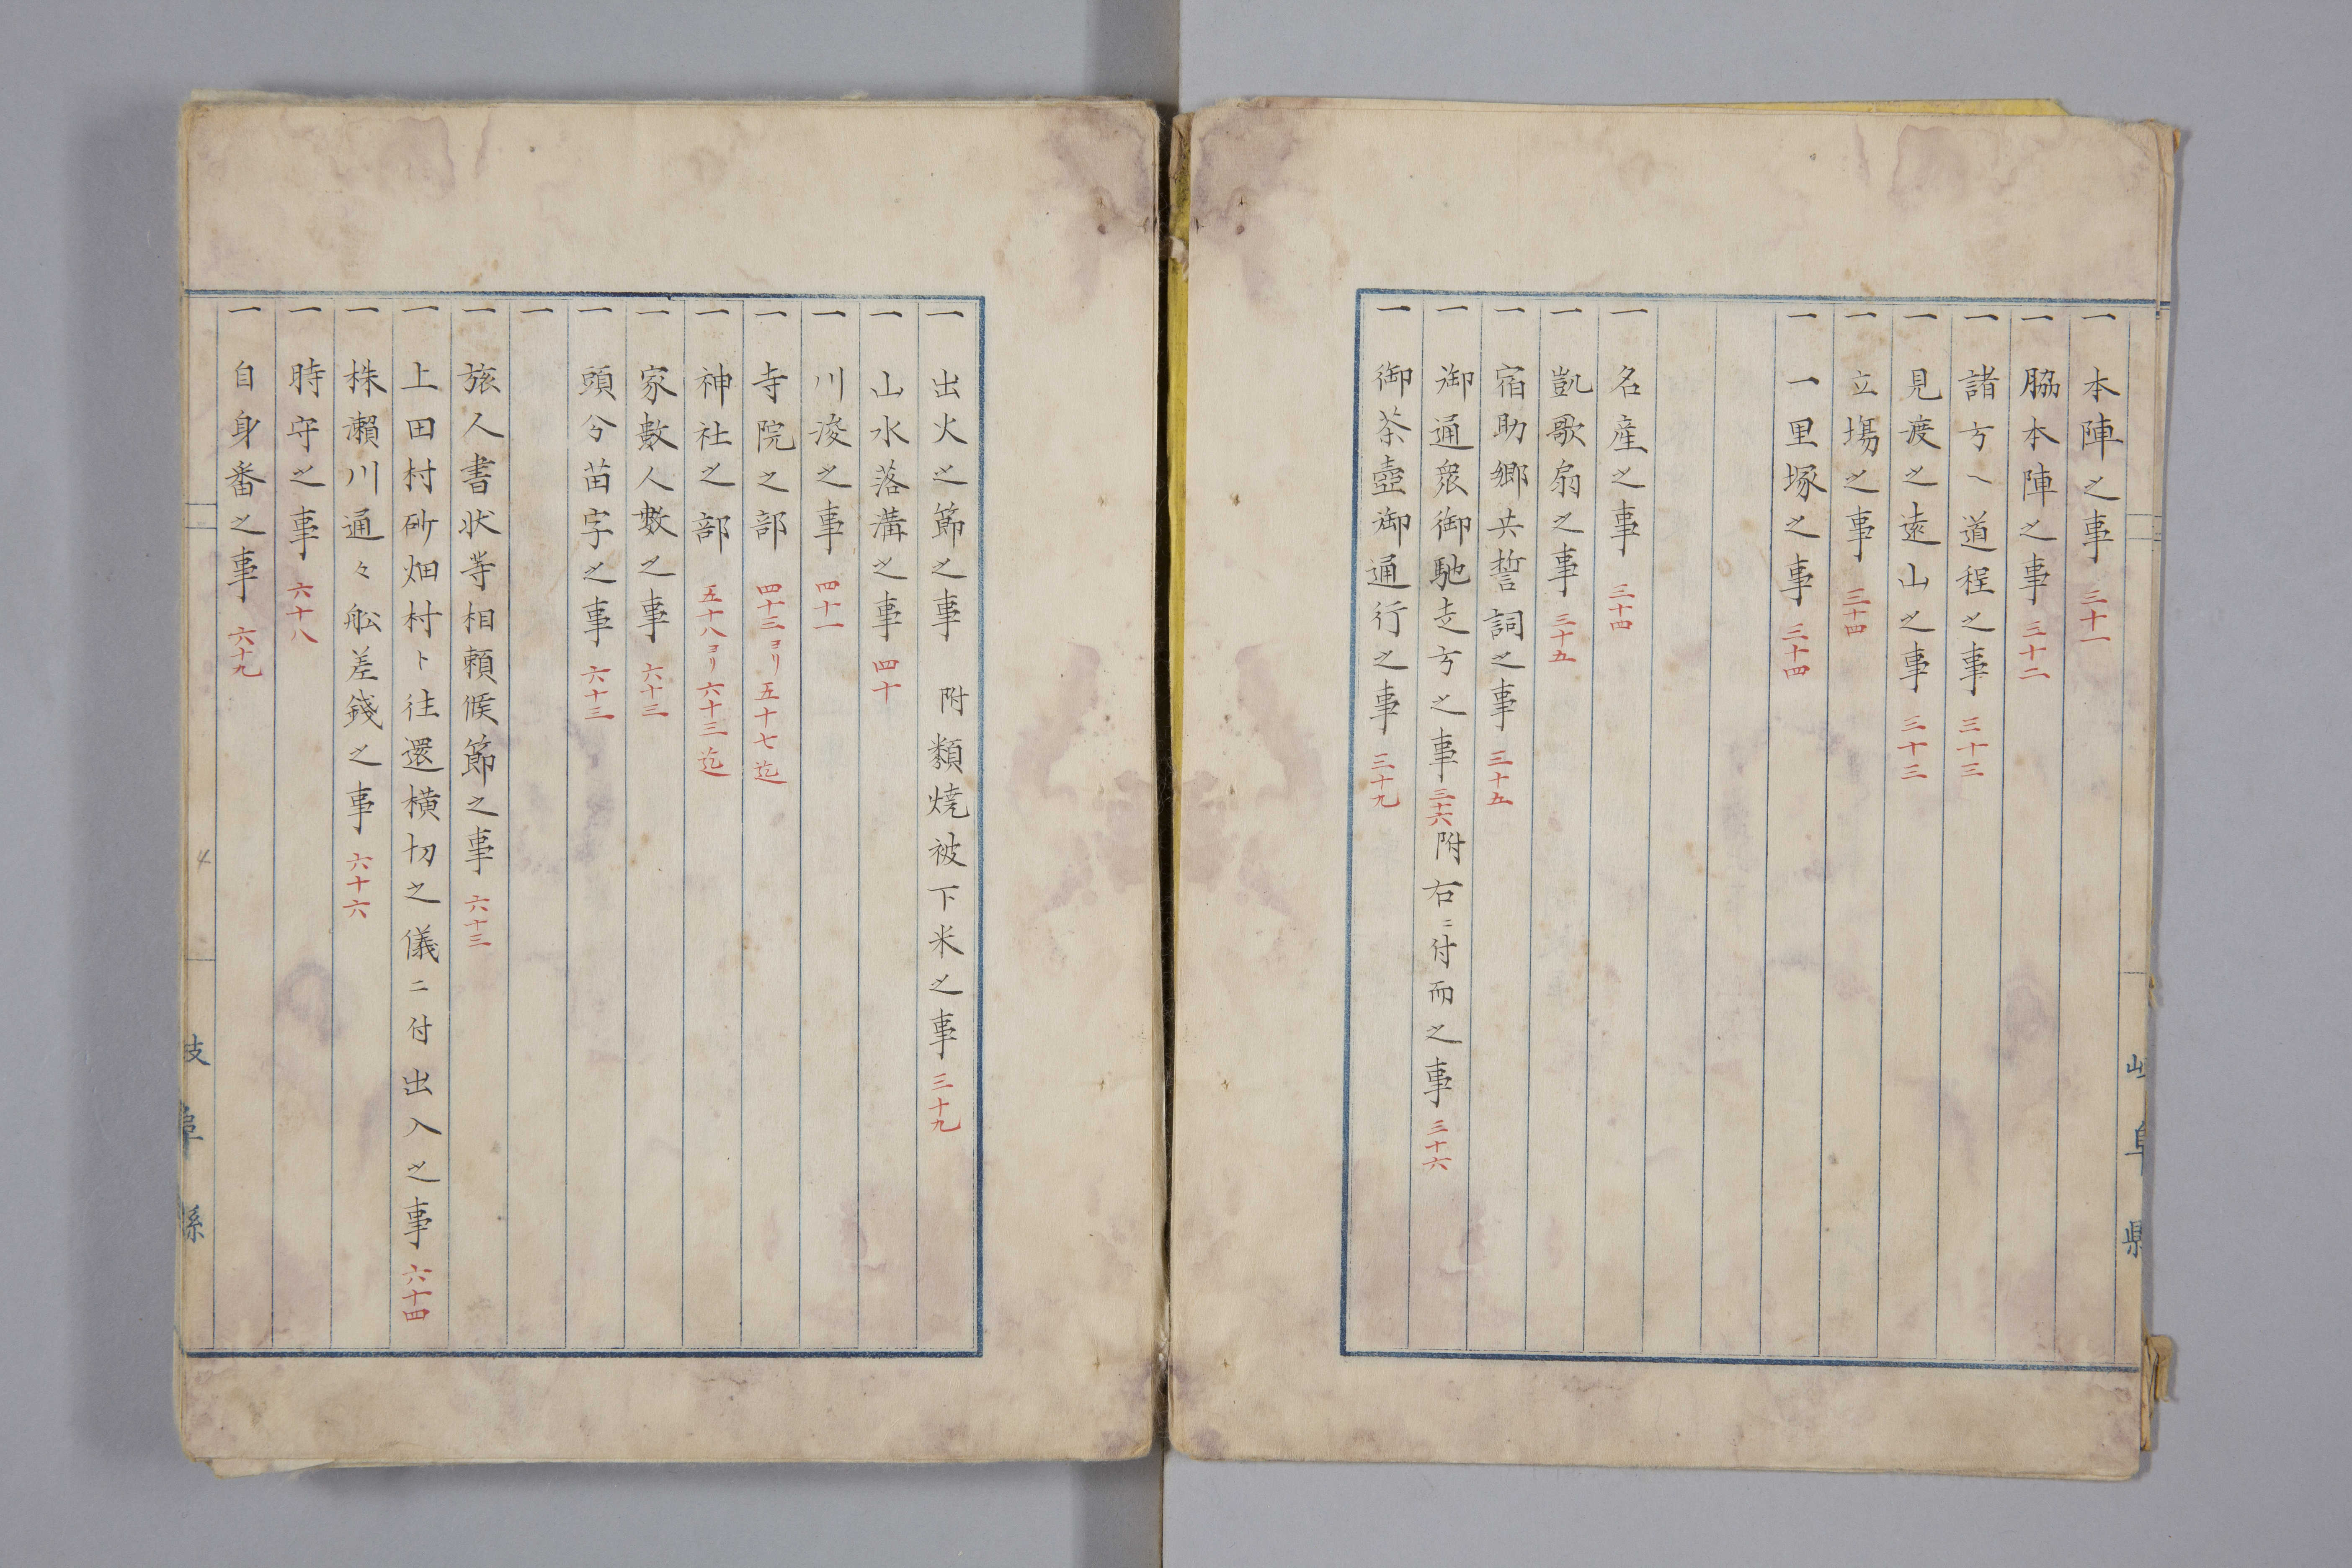 一 本陣之事 三十一
一 脇本陣之事 三十二
一 諸方ヘ道程之事 三十三
一 見渡之遠山之事 三十三
一 立場之事 三十四
一 一里塚之事 三十四
一 名産之事 三十四
一 凱歌扇之事 三十五
一 宿助郷共誓詞之事 三十五
一 御通衆御馳走方之事 三十六 附右ニ付而之事 三十六
一 御茶壺御通行之事 三十九
岐阜県
一 出火之節之事 附類焼被下米之事 三十九
一 山水落溝之事 四十
一 川浚之事 四十一
一 寺院之部 四十三ヨリ五十七迄
一 神社之部 五十八ヨリ六十三迄
一 家數人數之事 六十三
一 頭分苗字之事 六十三
一
一 旅人書状等相頼候節之事 六十三
一 上田村砂畑村ト往還横切之儀ニ付出入之事 六十四
一 株瀬川通々舩差錢之事 六十六
一 時守之事 六十八
一 自身番之事 六十九
4
岐阜縣